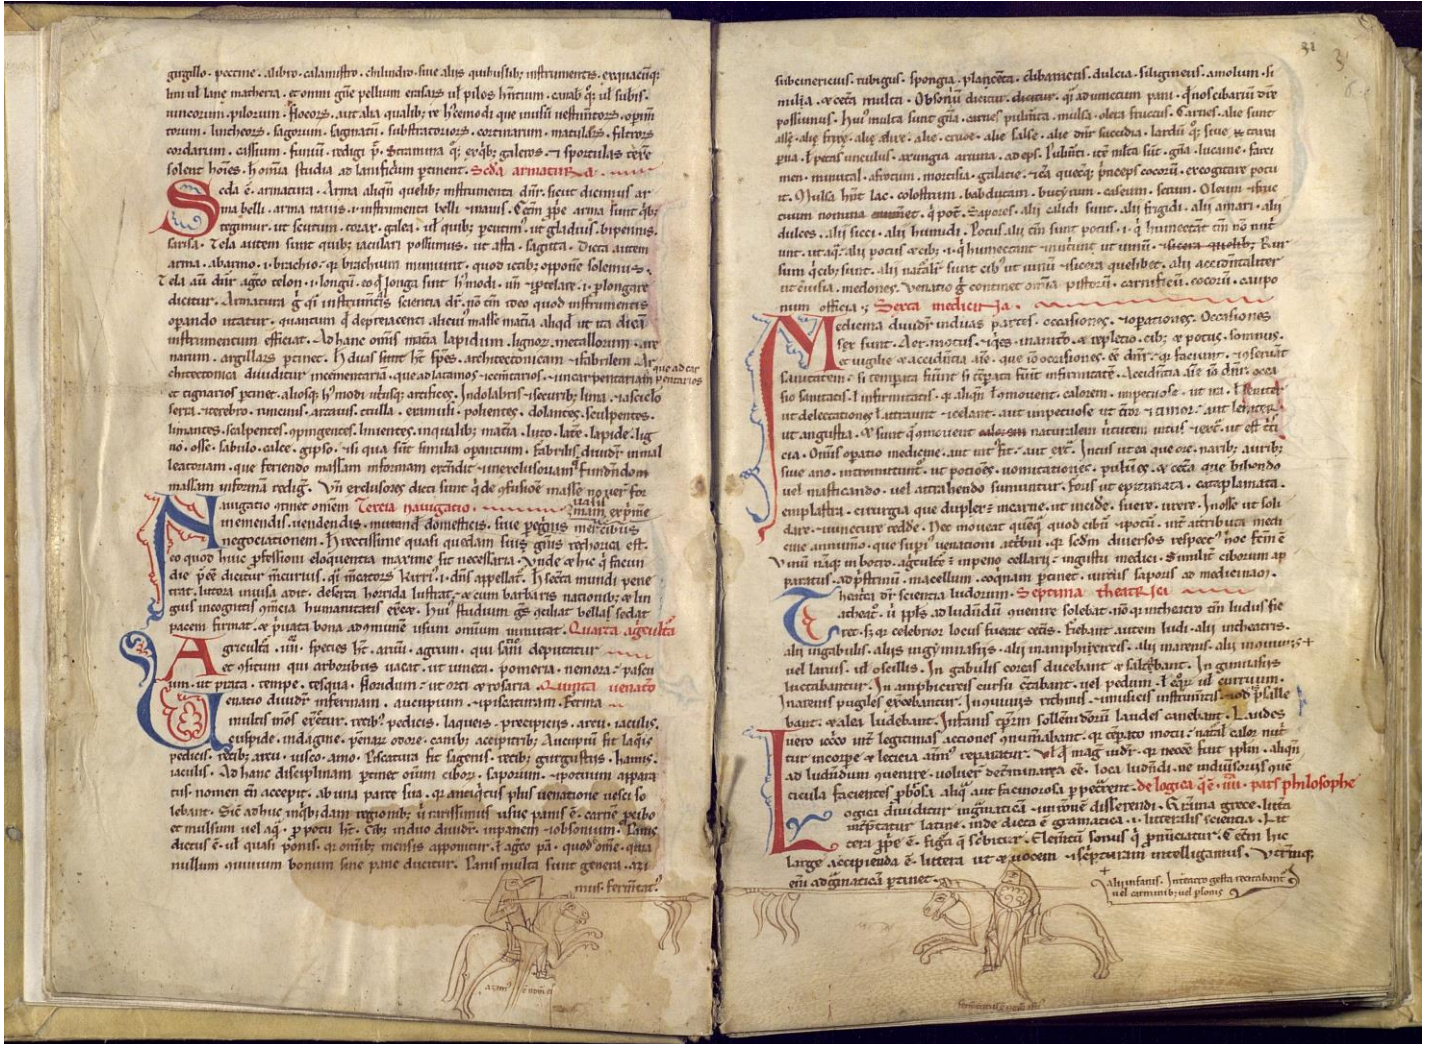 girgillo · pectine · alibro · calamistro · chilindro · siue aliis quibuslibȝ instrumentis · exquacūqȝ
lini ul lane materia · et omni gn̄e pellium erasarū ul pilos hn̄tium · canab qȝ · ul subis ·
iuncorum · pilorum · floccorū · aut alia qualibȝ re hꝰcemodi que inusū uestim̄torū · opim̄
torum · lintheorū · sagorum · saginatū · substratoriorū · cortinarum · matularū · filtrorū
cordarum · cassium · funiū · redigi p̄ · Stramina qȝ · galeros · ⁊ sportulas
solent hoīes · h̄ om̄ia studia ad lanificiū ptinent · Scd̄a armatura
Scda ē · armatura · Arma aliqn̄ quelibȝ instrumenta dn̄r · sicut dicimus ar
ma belli · arma nauis · ⁊ instrumenta belli ⁊ nauis · Cet̄m arma sunt qͥbȝ
tegimur · ut scutum · torax · galea · ul quibȝ pcutim̄ · ut gladiꝰ · bipennis ·
sarisa · Tela autem sunt quibȝ iaculari possumus · ut asta · sagitta · Dicta autem
arma · abarmo · i · brachio · qͥ brachium muniunt · quod ictibȝ opponē solemus ·
Tela aū dn̄r agͤco telon · i · longū · eo qͩ longa sunt hꝰmodi · un̄ ptelare · i · plongare
dicitur · Armatura ḡ qͣi instrum̄tis scientia dr̄ · nō tm̄ ideo quod instrumentis
opando utatur · quantum qͩ depreiacenti alicuiꝰ masse mat̄ia aliqͩ ut ita dicā
instrumentum efficiat · Ad hanc om̄is mat̄ia lapidum · lignoȝ · metallorum · are
narum · argillarū ptinet · h̄ duas sunt h̄t sp̄es · architectonicam ⁊ fabrilem · Ar
chitectonica diuiditur incementariā · que ad latomos ⁊ cem̄tarios · ⁊ incarpentariam que ad car pentarios
et tignarios ptinet · aliosqȝ hꝰmodi utͥusqȝ artifices · Indolabris ⁊ securibȝ · lima · ⁊ asciclo
serra ⁊ terebro · runcinis · artauis · trulla · examisi · polientes · dolantes · sculpentes ·
limantes · scalpentes · ꝯpingentes · linientes · inqualibȝ mat̄ia · luto · lat̄e · lapide · lig
no · osse · sabulo · calce · gipso · ⁊ si qua sūt similia opantium · Fabrilis diuidr̄ inmal
leatoriam · que feriendo massam informam extn̄dit · ⁊ inexclusoriam · fundn̄do
massam informā redigᷣ · Vn̄ exclusores dicti sunt qͥ de ꝯfusiōe masse nouerᷣ for
Nauigatio ꝯtinet omīem Tercia nauigatio · uasis mam exprime
inemendis · uendendis · mutandꝭ domesticis · siue pegͥnis mercibus
negociationem · h̄ rectissime quasi quedam sui gn̄is rethorica est ·
eo quod huic pfessioni eloquentia maxime sit necessaria · Vnde ⁊ hic qͥ facun
die pēē dicitur m̄curius · qͣi m̄catorū kirri · i · dn̄s appellatᷣ · h̄ secreta mundi pene
trat · littora inuisa adit · deserta horrida lustrat · ⁊ cum barbaris nationibȝ ⁊ lin
guis incognitis ꝯm̄cia humanitatis exercet · Huiꝰ studium gͣs ꝯciliat bellas sedat
pacem firmat · ⁊ pͥuata bona ad ꝯmunē usum omīum inmutat · Quarta agͥcultᷣa
Agricultᷣa · iiii · species h̄t · aruū · agrum · qui satui deputatur
et ꝯsitum qui arboribus uacat · ut uineta · pomeria · nemora · pascu
um · ut prata · tempe · tesqua · floridum · ut orti ⁊ rosaria · Quinta uenatio
Uenatio diuidr̄ inferinam · aucupium · ⁊ piscaturam · Ferina
multis mōis exer̄cetur · retibȝ · pedicis · laqueis · precipiciis · arcu · iaculis ·
cuspide · indagine · pēnarū odore · canibȝ · accipitribȝ · Aucupiū fit laqͥis
pedicis · retibȝ · arcu · uisco · amo · Piscatura fit sagenis · retibȝ · gurgustiis · hamis ·
iaculis · Ad hanc disciplinam ptinet oīum ciboȝ · saporum · ⁊ potuum appara
tus · nomen tm̄ accepit · ab una parte sua · qͥ antiqͥtus plus uenatione uesci so
lebant · Sic̄ adhuc inqͥbȝdam regionibȝ · ū rarissimus usus panis ē · carnē p cibo
et mulsum uel aqͣ · p potu h̄t · Cibȝ induo diuidr̄ · inpanem ⁊ obsonium · Panis
dictus ē · ul quasi ponis · qͥ omībȝ mensis apponitur · ł agͤco pā · quod om̄e · quia
nullum ꝯuiuium bonum sine pane ducitur · Panis multa sunt genera · azi
mus · ferm̄tatꝰ
31
subcinericius · rubigus · spongia · placenta · clibanicius · dulcia · siligineus · amolum · si
milia · ⁊ cet̄a multa · Obsoniū dicitur · dicitur · qͣi adiunctum pani · qͩ nos cibariū dic̄e
possumus · Huiꝰ multa sunt gn̄a · carnes · pulm̄ta · mulsa · olera · fructus · Carnes · alie sunt
asse · alie frixe · alie elixe · alie · crude · alie salse · alie dn̄r succidia · lardū qȝ · siue
pna · ł petasunculus · axungia · aruina · adeps · Pulm̄ti · itē mlta sūt · gn̄a · lucanie · farci
men · minutal · afrotum · mortisia · galatie · ⁊ cet̄a quecūqȝ pͥnceps cocorū · excogitare potu
it · Mulsa h̄nt lac · colostrum · babducam · butyrum · caseum · serum · Oleum ⁊ fruc
tuum nomina · qͥs pot̄ · Sapores · alii calidi sunt · alii frigidi · alii amari · alii
dulces · alii sicci · alii humidi · Potus · alii tm̄ sunt potus · i · qͥ humectāt tm̄ nō nutͥ
unt · ut aqͣ · alii potus ⁊ cibȝ · i · qͥ humectant ⁊ nutͥunt · ut uinū · ⁊ sicera quelibȝ Rur
sum qͥ cibȝ sunt · alii nat̄alr̄ sunt cibꝰ ut uinū · ⁊ sicera quelibet · alii accidentaliter
ut c̄uisia · medones · Venatio ḡ continet om̄ia pistorū · carnificū · cocorū · caupo
num officia · Sexta medicina ·
Medicina diuidr̄ induas partes · occasiones · ⁊ opationes · Occasiones
sex sunt · Aer · motus · ⁊ qͥes · inanitō · ⁊ repletio · cibȝ · ⁊ potus · somnus ·
et uigilie · ⁊ accidn̄tia aīe · que iō occasiones · ēē dn̄r · qͥ faciunt · ⁊ ꝯseruāt
sanitatem · si tempata fūint · si intēpata fūint infirmitatē · Accidn̄tia aīe iō dn̄r · occa
sio sanitatis · ł infirmitatis · qͥ aliqn̄ ł ꝯmouent · calorem · inpetuose · ut ira · ł leuitͤ
ut delectationes · ł attraunt ⁊ celant · aut inpetuose ut tͥror ⁊ timor · aut leniter
ut angustia · ⁊ sunt qͥ ꝯmouent naturalem uͥtutem intus ⁊ extᷓ · ut est tͥsti
cia · Om̄is opatio medicine · aut intᷓ fit · aut extᷓ · Intus ut ea que ore · naribȝ auribȝ
siue ano · intromittunᷣ · ut potiōes · uomitiones · puluēs · ⁊ cet̄a que bibendo
uel masticando · uel attrahendo sumuntur · Foris ut epitimata · cataplamata ·
emplastra · cirurgia que duplex · incarne · ut incide̅ · suere · urere · Inosse ut soli
dare · ⁊ iunctur̄e redde̅ · Nec moueat quēqͣ quod cibū ⁊ potū · int̄ attributa medi
cine annum̄o · que supiꝰ uenationi attbui · qͥ scdm̄ diuersos respectꝰ hoc fcm̄ ē
Vinū nāqȝ in botro · agͥcultᷣe · inpeno cellarii · ingustu medici · Similit̄ ciborum ap
paratus · ad pistrinū · macellum · coqͥnam ptinet · uirtus saporis ad medicinam ·
Theatͥca dr̄ scientia ludorum · Septima theatͥca
atheatͦ · ū ppls̄ ad ludn̄dū ꝯuenire solebat · nō qͥ intheatro tm̄ ludus fie
ret · sȝ qͥ celebrior locus fuerat cet̄is · Fiebant autem ludi · alii intheatris ·
alii ingabulis · alii ingymnasiis · alii inamphitͤtris · alii inarenis · alii inꝯuiuiis +
uel lariis · ul oscillis · In gabulis coreas ducebant ⁊ saltabant · In gimnasiis
luctabantur · In amphitͤtris cursu c̄tabant · uel pedum · ł eqͦȝ · ul curruum ·
Inarenis pugiles exercebantur · Inꝯuiuiis rithmis ⁊ musicis instrum̄tis · ⁊ odꝭ psalle
bant · ⁊ alea ludebant · Infanis tpr̄m sollēnib deorū laudes canebant · Ludos
uero iccͦo int̄ legitimas acciones ꝯnum̄abant · qͥ tēpato motu · nat̄al calor nutͥ
tur incorpe ⁊ leticia aīmꝰ reparatur · ul qͥ magͥ uidr̄ · qͥ necēē fuit pplm̄ · aliqn̄
ad ludn̄dum ꝯuenire · uoluerᷣ det̄minata ēē · loca ludn̄di · ne indiuersoriis ꝯuē
ticula facientes · pbrosa aliqͣ aut facinorosa p petrent · de logica qͥ ē · iiii · pars philosophe
Logica diuiditur ingͣmaticā ⁊ inratiōē disserendi · Gͣma grece · litt̄a
int̄ptatur latine · inde dicta ē gͣmatica · i · litteralis sciencia · Lit
tera ē · figͣra qͥ scͥbitur · Elem̄tū sonus qͥ pnūciatur · Cet̄m hic
large accipienda ē · littera ut ⁊ uocem ⁊ scͥpturam intelligamus · Vtrūqȝ
eīm ad gͣmaticā ptinet ·
+ alii infanis · Intheatro gesta recitabantᷣ
uel carminibȝ uel psonis